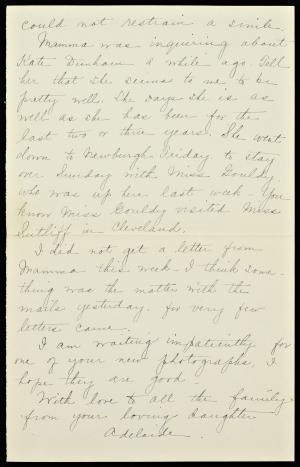 could not restrain a smile.
Mamma was inquiring about
Kate Dunham a while ago. Tell
her that she seems to me to be
pretty well. She says she is as
well as she has been for the
last two or three years. She went
down to Newburgh Friday to stay
over Sunday with Miss Gouldy,
who was up here last week. You
know Miss Gouldy visited Miss
Sutliff in Cleveland.
I did not get a letter from
Mamma this week – I think some-
thing was the matter with the
mails yesterday, for very few
letters came.
I am waiting impatiently for
one of your new photographs, I
hope they are good.
With love to all the family
from your loving daughter
Adelaide.